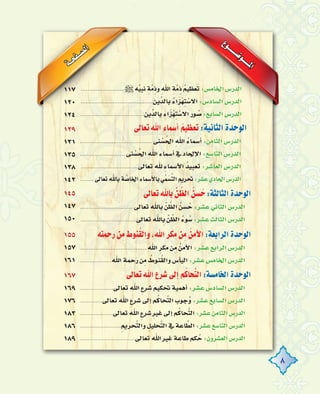 الموضوع
الصفحة
الدرس الخامس: تعظيم ذمة الله وذمة نبيه ﷺ ١١٧
الدرس السادس: الاستهزاء بالدين ١٢٠
الدرس السابع: صور الاستهزاء بالدين ١٢٤
الوحدة الثانية: تعظيم أسماء الله تعالى ١٢٩
الدرس الثامن: أسماء الله الحسنى ١٣١
الدرس التاسع: الإلحاد في أسماء الله الحسنى ١٣٥
الدرس العاشر: تعبيد الأسماء لله تعالى ١٣٨
الدرس الحادي عشر: تحريم التسمي بالأسماء الخاصة بالله تعالى ١٤٢
الوحدة الثالثة: حسن الظن بالله تعالى ١٤٥
الدرس الثاني عشر: حسن الظن بالله تعالى ١٤٧
الدرس الثالث عشر: سوء الظن بالله تعالى ١٥٠
الوحدة الرابعة: الأمن من مكر الله، والقنوط من رحمته ١٥٥
الدرس الرابع عشر: الأمن من مكر الله ١٥٧
الدرس الخامس عشر: اليأس والقنوط من رحمة الله ١٦١
الوحدة الخامسة: التحاكم إلى شرع الله تعالى ١٦٧
الدرس السادس عشر: أهمية تحكيم شرع الله تعالى ١٦٩
الدرس السابع عشر: وجوب التحاكم إلى شرع الله تعالى ١٧٦
الدرس الثامن عشر: التحاكم إلى غير شرع الله تعالى ١٨٣
الدرس التاسع عشر: الطاعة في التحليل والتحريم ١٨٦
الدرس العشرون: حكم طاعة غير الله تعالى ١٨٩
٨